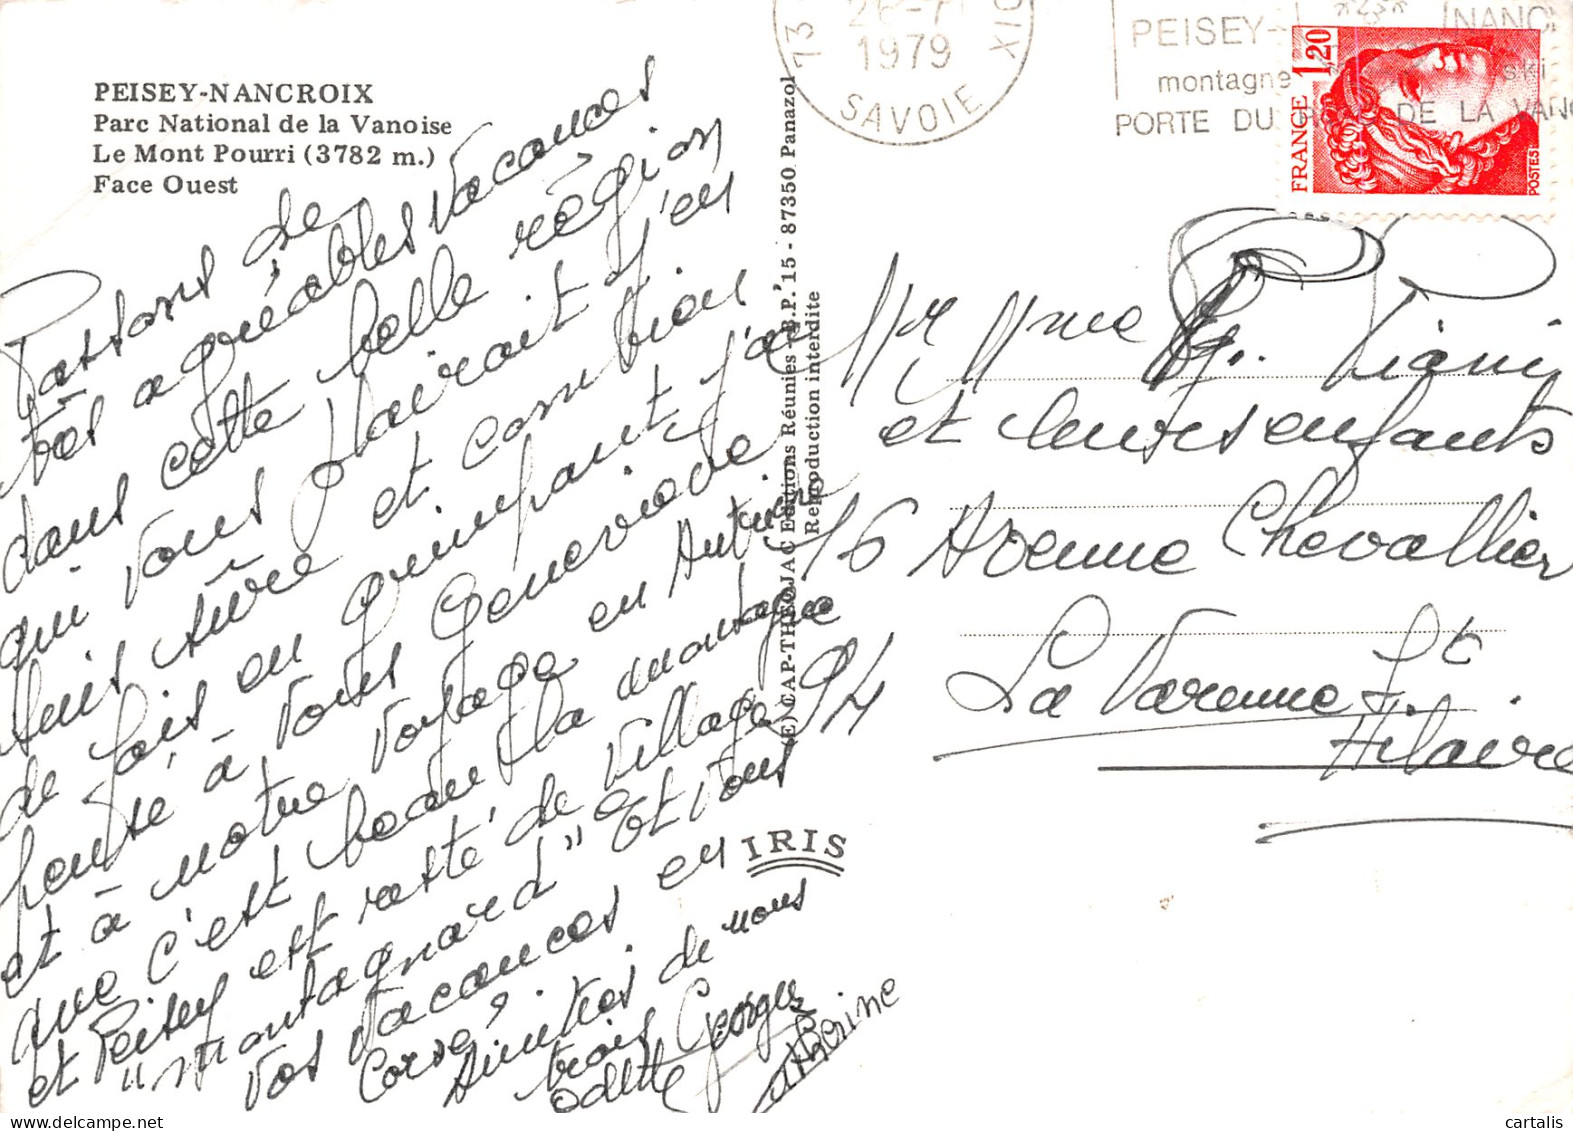 PEISEY-NANCROIX
Parc National de la Vanoise
Le Mont Pourri (3782 m.)
Face Ouest
Passons de
très agréables vacances
dans cette belle région
qui vous plairait j'en
suis sûre et combien
de fois en grimpant j'ai
pensé à vous Geneviève
et à notre voyage en Autriche
que c'est beau la montagne
et Peisey est resté de village
"montagnard" Et vous
vos vacances en
Corse ?
Amitiés de nous
trois Georges
Odette
Catherine
(E) CAP-THEOJAC Editions Réunies B.P. 15 - 87350 Panazol
Reproduction interdite
IRIS
73
26-7
1979
SAVOIE
PEISEY- NANC
montagne ski
PORTE DU DE LA VANO
FRANCE 1,20
POSTES
Mr Mme
et leurs enfants
16 Avenue Chevallier
94 La Varenne St
Hilaire
cartalis
delcampe.net